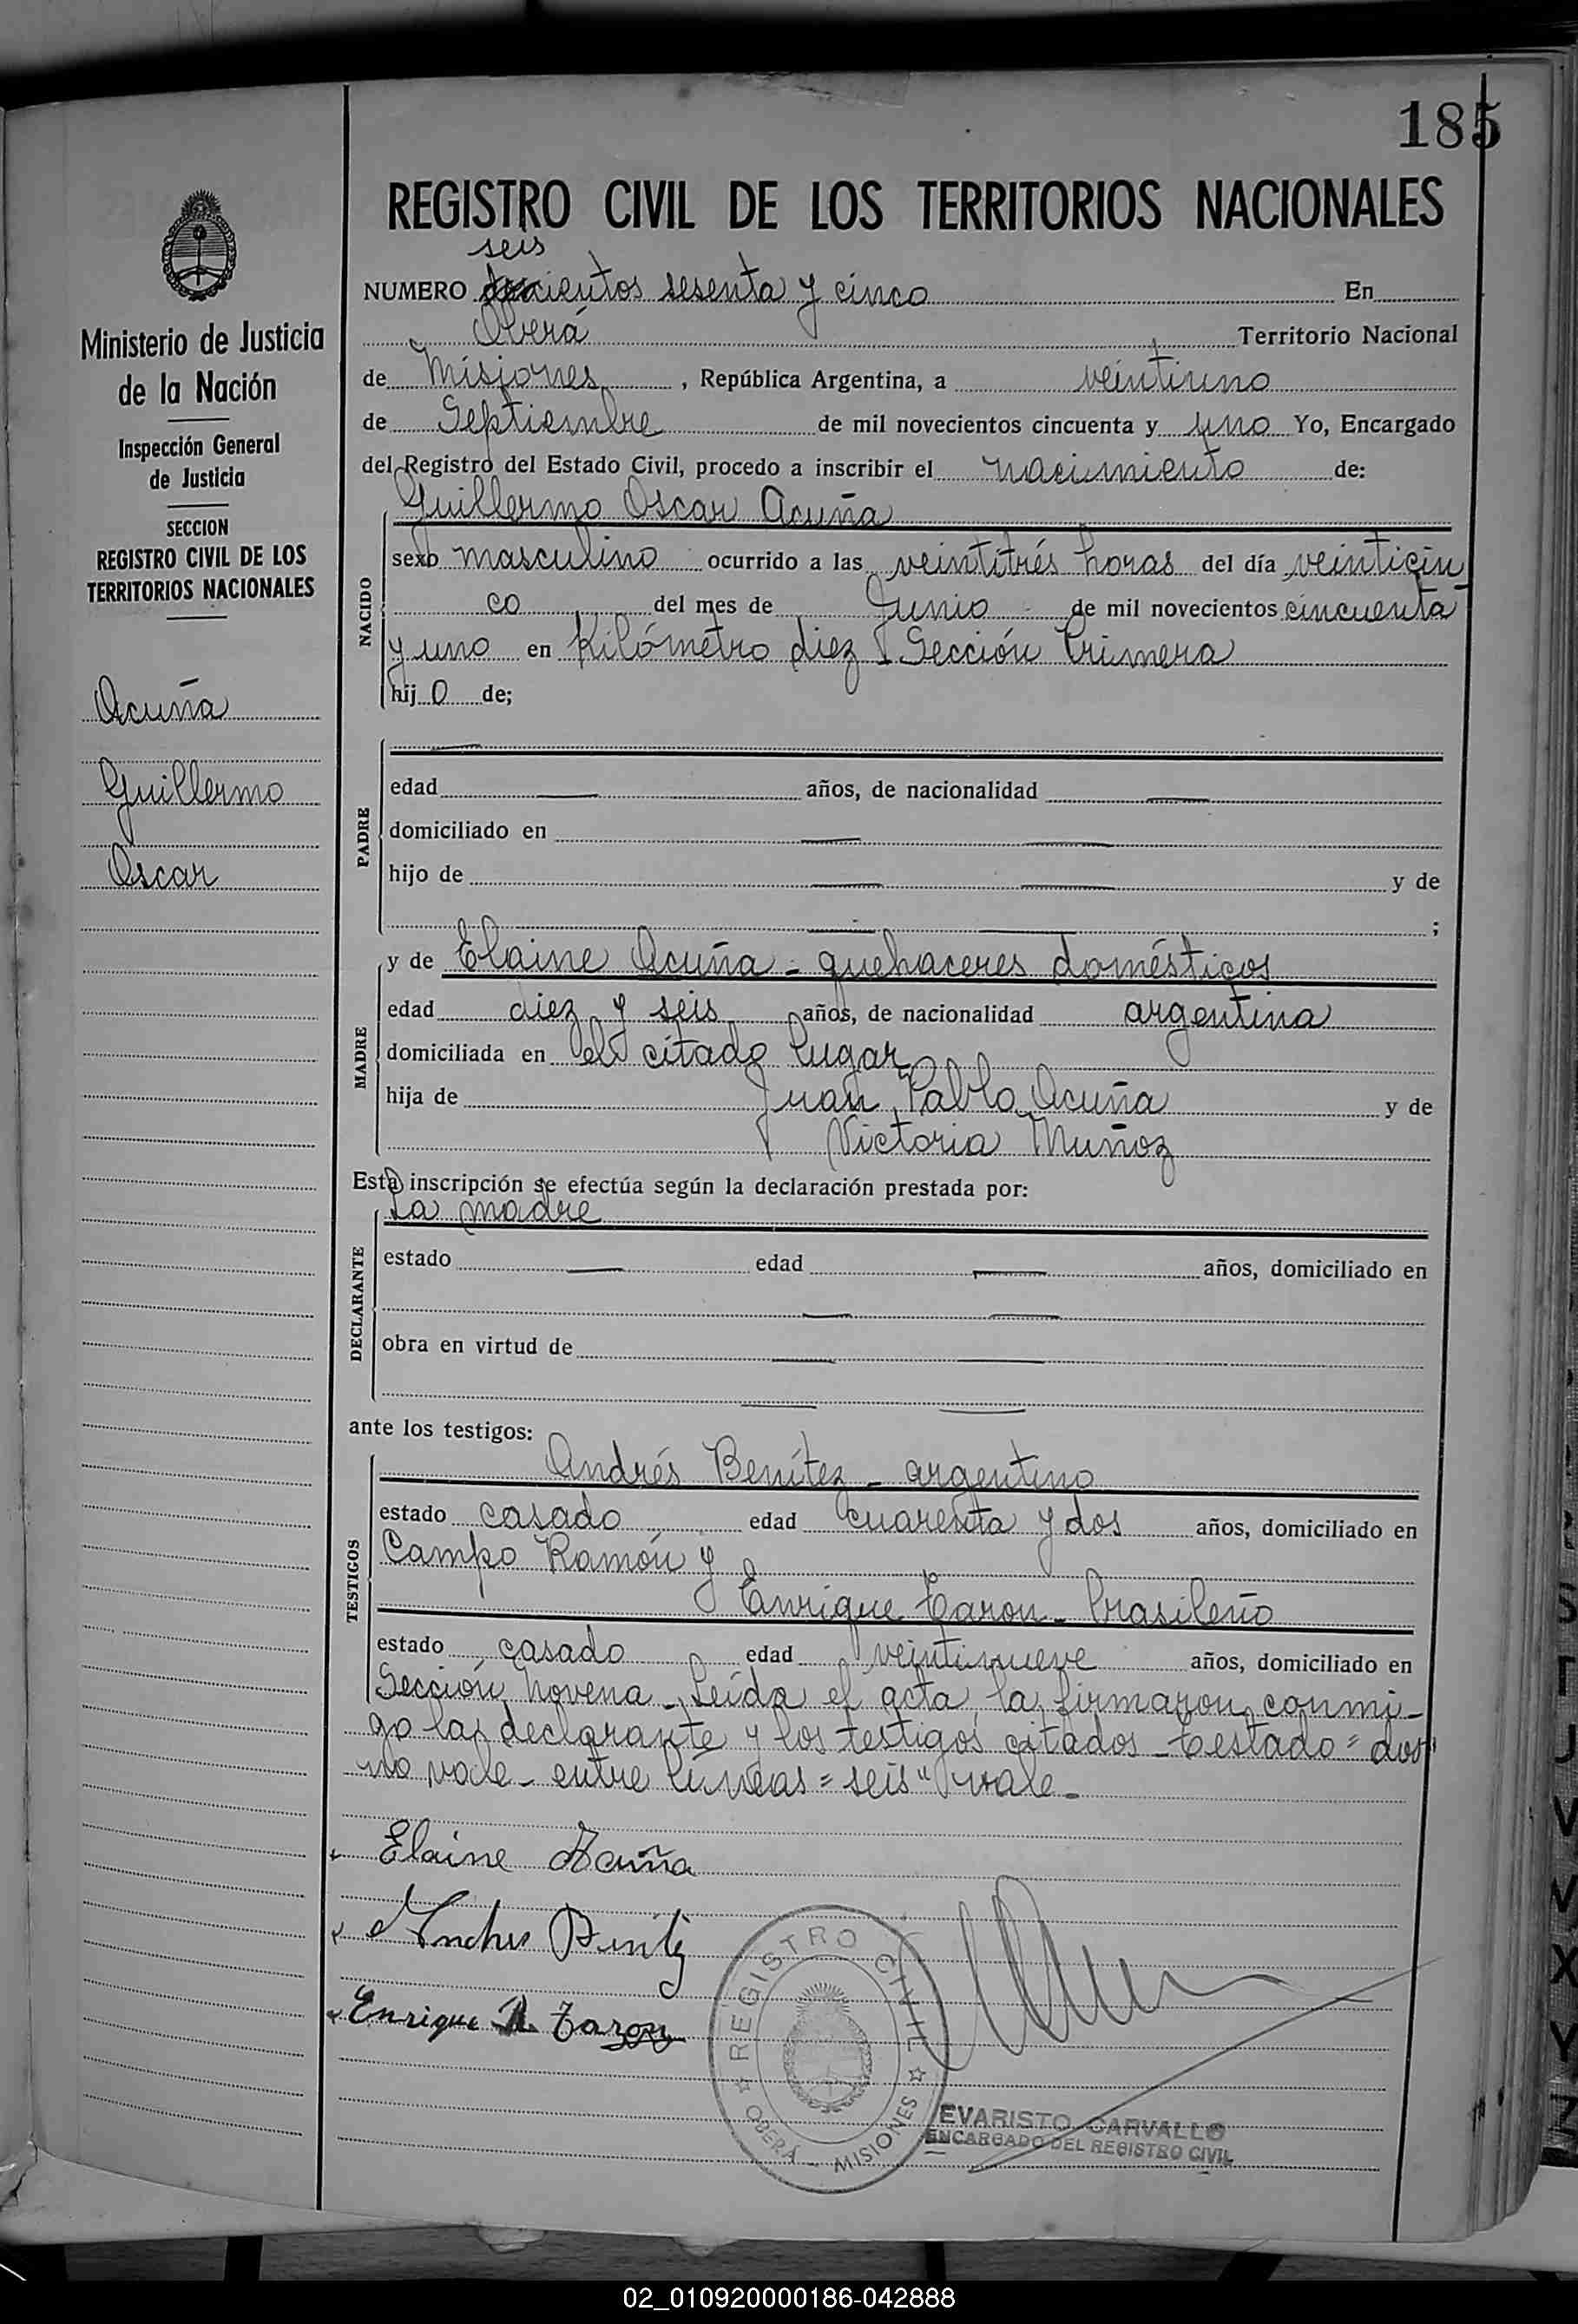 185
REGISTRO CIVIL DE LOS TERRITORIOS NACIONALES
seis
NUMERO doscientos sesenta y cinco En
Oberá Territorio Nacional
de Misiones, República Argentina, a veintiuno
de Septiembre de mil novecientos cincuenta y uno Yo, Encargado
del Registro del Estado Civil, procedo a inscribir el nacimiento de:
Guillermo Oscar Acuña
NACIDO
sexo masculino ocurrido a las veintitrés horas del día veinticin
co del mes de Junio de mil novecientos cincuenta
y uno en Kilómetro diez Sección Primera
hijo de;
PADRE
edad — años, de nacionalidad —
domiciliado en — —
hijo de — — y de
— — ;
MADRE
y de Elaine Acuña - quehaceres domésticos
edad diez y seis años, de nacionalidad argentina
domiciliada en el citado lugar
hija de Juan Pablo Acuña y de
Victoria Muñoz
Esta inscripción se efectúa según la declaración prestada por:
La madre
DECLARANTE
estado — edad — años, domiciliado en
— —
obra en virtud de — —
— —
ante los testigos:
TESTIGOS
Andrés Benítez - argentino
estado casado edad cuarenta y dos años, domiciliado en
Campo Ramón y
Enrique Taron - brasileño
estado casado edad veintinueve años, domiciliado en
Sección Novena - Leída el acta, la firmaron conmi-
go la declarante y los testigos citados - Testado = dos"
no vale - entre líneas = seis" vale -
Elaine Acuña
Andres Benitez
Enrique Taron
REGISTRO CIVIL
OBERÁ - MISIONES
EVARISTO CARVALLO
ENCARGADO DEL REGISTRO CIVIL
Ministerio de Justicia
de la Nación
Inspección General
de Justicia
SECCION
REGISTRO CIVIL DE LOS
TERRITORIOS NACIONALES
Acuña
Guillermo
Oscar
S
T
J
V
V
X
Y
Z
02_010920000186-042888